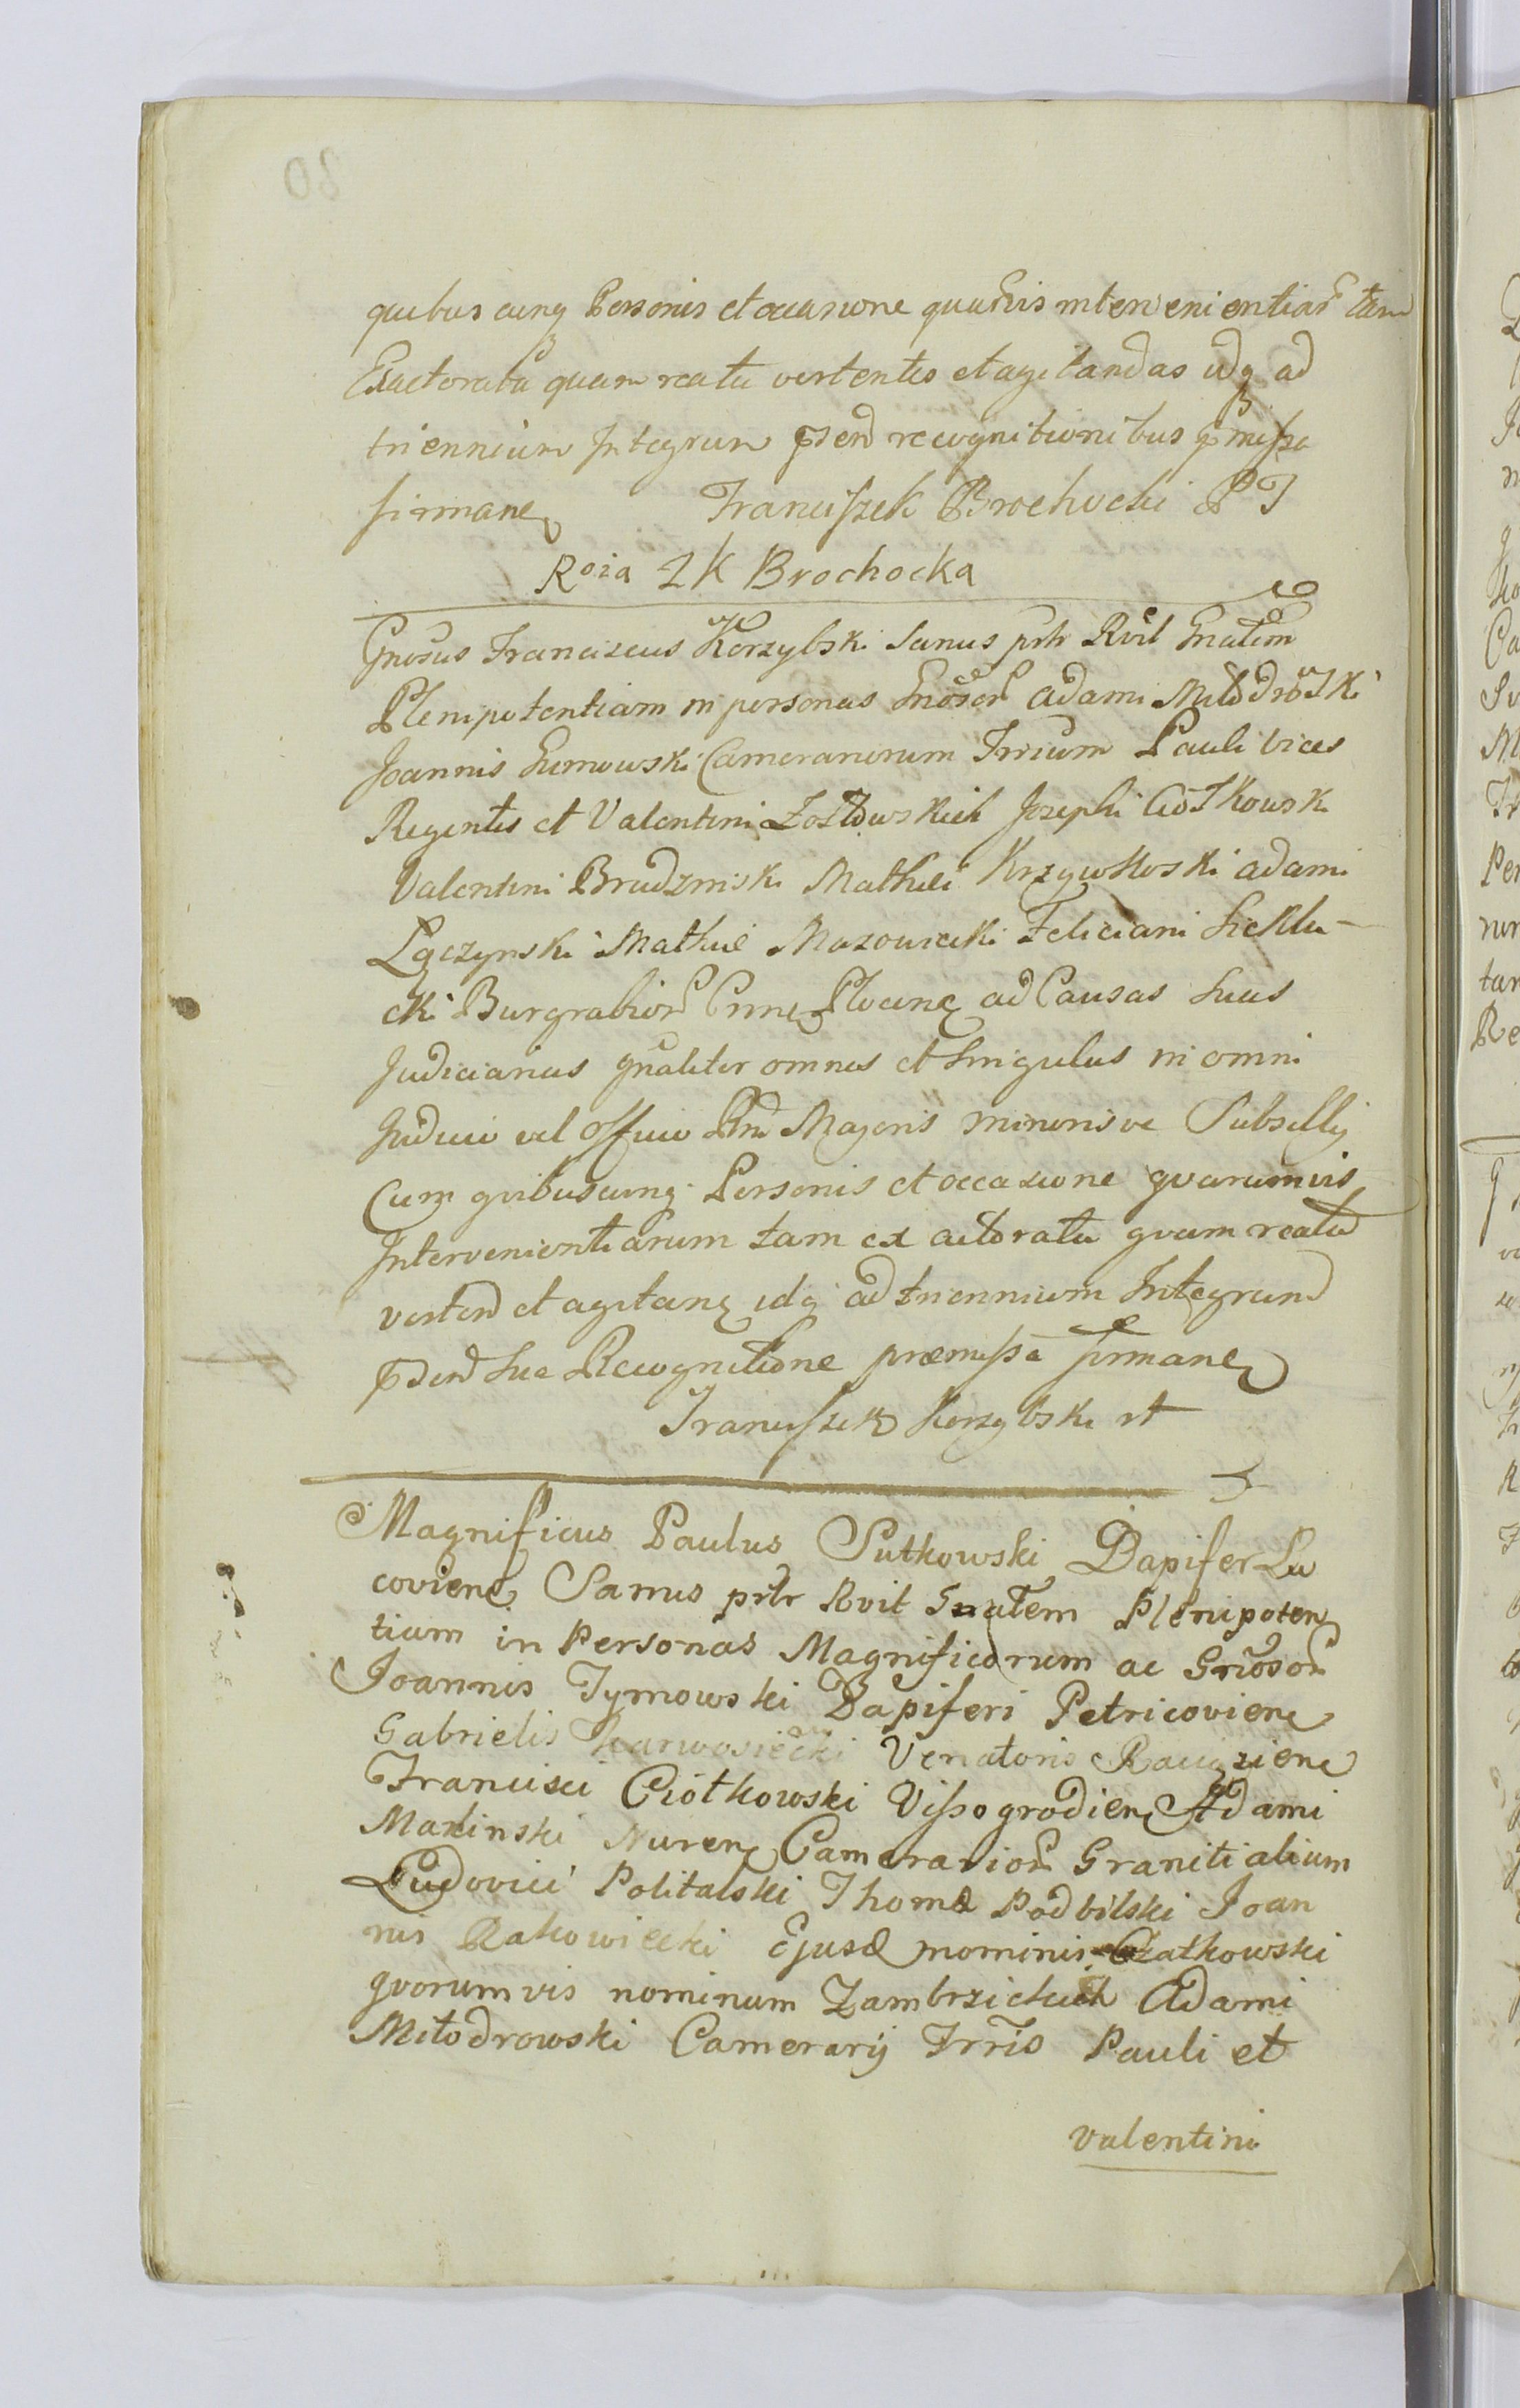 quibus cunq Personis et occasione quarũvis intervenientiar tam
Exactoratu quam reatu vertentes et agitandas idq ad
triennium Integrum psen recognitionibus pmissa
firmane Franciszek Brochocki PT
Roia 2K Brochocka
Gnosus Franciscus Korzybski Sanus prtr Rvit Gnalem
Plenipotentiam in personas Gnosor Adami Miłodrowski
Joannis Gumowski Camerariorum Trrium Pauli vices
Regentis et Valentini Zołtowskich Josephi Ciołkowski
Valentini Brudzinski Mathei Krzywkoski Adami
Łączynski Mathie Mazowiecki Feliciani Sieklu-
cki Burgrabior Crnes Plocane ad Causas Suas
Judiciarias gnaliter omnes et Singulas in omni
Judicio vel Officio Rni Majoris minorisve Subsellij
Cum qvibuscunq Personis et occasione qvarumvis
Intervenientiarum tam ex actoratu qvam reatu
verten et agitane idq ad triennium Integrum
psen Sua Recognitione præmissa firmane
Franciszek Korzybski rt
Magnificus Paulus Sutkowski Dapifer Lu
coviene Sanus prtr Rvit Gnalem Plenipoten
tiam in Personas Magnificorum ac Gnosor
Joannis Tymowski Dapiferi Petricoviene
Gabrielis Karwosiecki Venatoris Raciąziene
Francisci Ciołkowski Vissogrodiene Adami
Marinski Nurene Camerarior Granitialium
Ludovici Politalski Thomæ Podbilski Joan
nis Rakowiecki Ejusd nominis Czatkowski
qvorumvis nominum Zambrzickich Adami
Miłodrowski Camerarij Trris Pauli et
Valentini